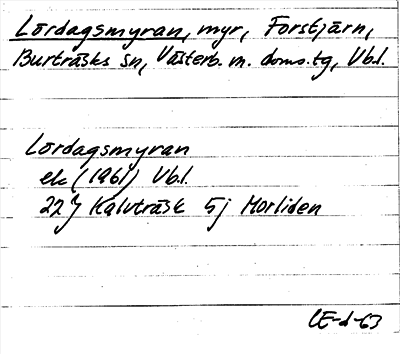 Lördagsmyran, myr, Forstjärn,
Burträsks sn, Västerb. m. doms.tg, Vbl.
Lördagsmyran
ek (1961) Vbl.
22J Kalvträsk 5j Morliden
CE-d-63